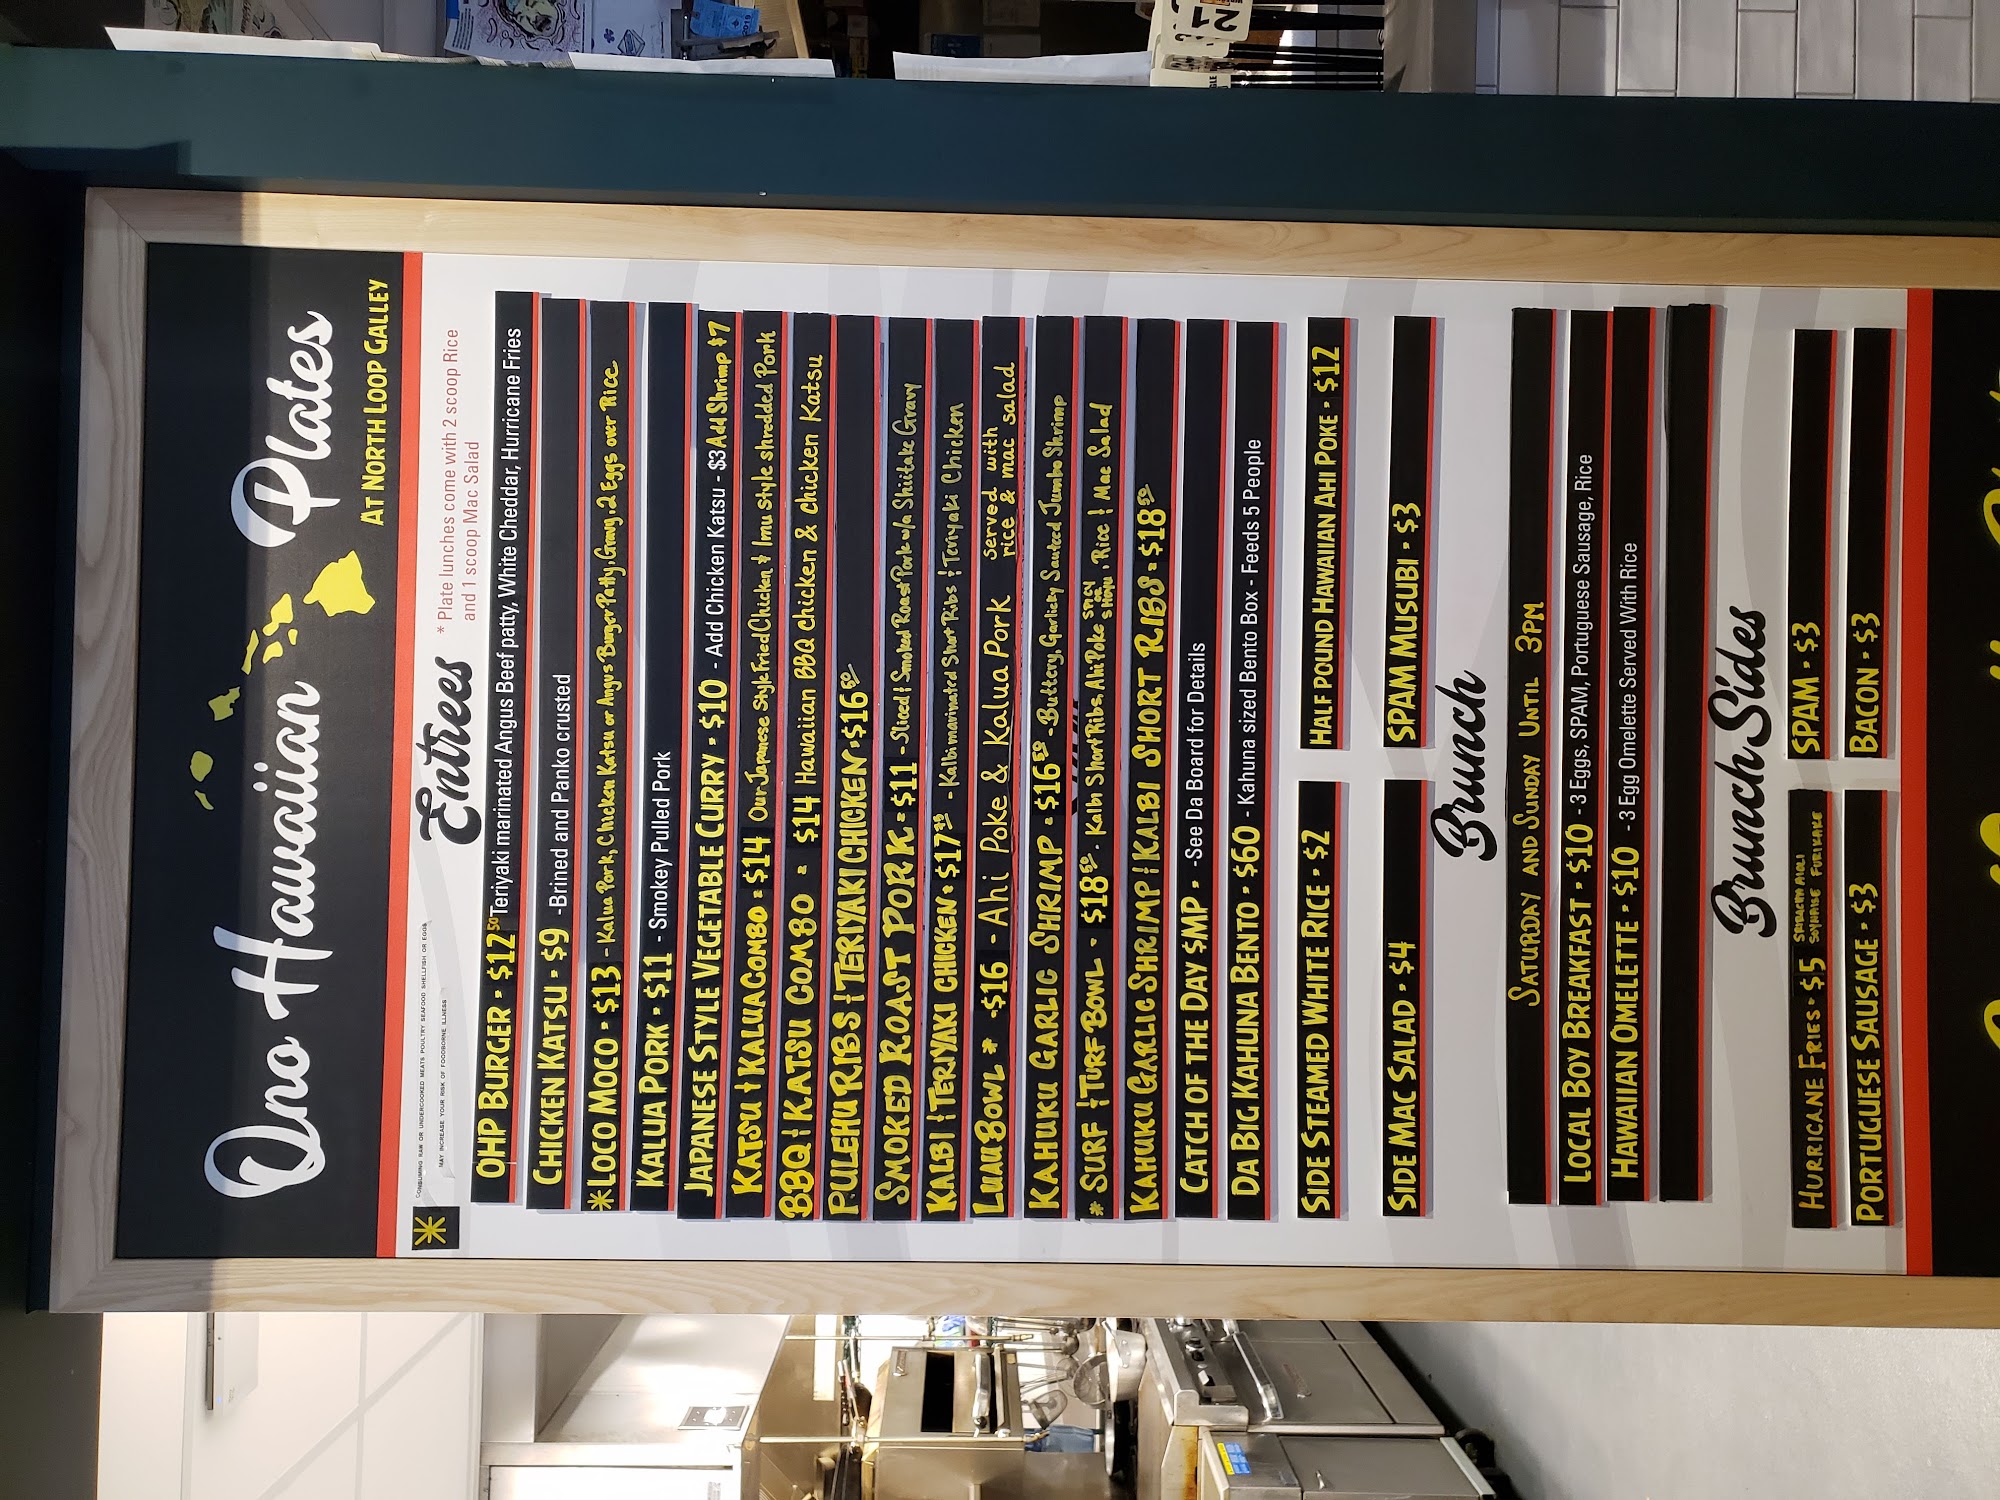 Ono Hawaiian Plates
AT NORTH LOOP GALLEY
CONSUMING RAW OR UNDERCOOKED MEATS POULTRY SEAFOOD SHELLFISH OR EGGS
MAY INCREASE YOUR RISK OF FOODBORNE ILLNESS
Entrees
* Plate lunches come with 2 scoop Rice
and 1 scoop Mac Salad
OHP BURGER • $12.50 Teriyaki marinated Angus Beef patty, White Cheddar, Hurricane Fries
CHICKEN KATSU • $9 -Brined and Panko crusted
*LOCO MOCO • $13 - Kalua Pork, Chicken Katsu or Angus Burger Patty, Gravy, 2 Eggs over Rice
KALUA PORK • $11 - Smokey Pulled Pork
JAPANESE STYLE VEGETABLE CURRY • $10 - Add Chicken Katsu - $3 Add Shrimp $7
KATSU + KALUA COMBO • $14 Our Japanese Style Fried Chicken + Imu style shredded Pork
BBQ + KATSU COMBO • $14 Hawaiian BBQ chicken & chicken Katsu
PULEHU RIBS + TERIYAKI CHICKEN • $16.50
SMOKED ROAST PORK • $11 - Sliced + Smoked Roast Pork w/a Shiitake Gravy
KALBI + TERIYAKI CHICKEN • $17.75 - Kalbi marinated Short Ribs + Teriyaki Chicken
LUAU BOWL * -$16 - Ahi Poke & Kalua Pork served with rice & mac salad
KAHUKU GARLIC SHRIMP • $16.50 - Buttery, Garlicky Sauteed Jumbo Shrimp
* SURF + TURF BOWL - $18.50 . Kalbi Short Ribs, Ahi Poke SPICY OR SHOYU, Rice + Mac Salad
KAHUKU GARLIC SHRIMP + KALBI SHORT RIBS • $18.50
CATCH OF THE DAY $MP • -See Da Board for Details
DA BIG KAHUNA BENTO • $60 - Kahuna sized Bento Box - Feeds 5 People
SIDE STEAMED WHITE RICE • $2
HALF POUND HAWAIIAN AHI POKE • $12
SIDE MAC SALAD • $4
SPAM MUSUBI • $3
Brunch
SATURDAY AND SUNDAY UNTIL 3PM
LOCAL BOY BREAKFAST • $10 - 3 Eggs, SPAM, Portuguese Sausage, Rice
HAWAIIAN OMELETTE • $10 - 3 Egg Omelette Served With Rice
Brunch Sides
HURRICANE FRIES • $5 SRIRACHA AIOLI SUNRISE FURIKAKE
SPAM • $3
PORTUGUESE SAUSAGE • $3
BACON • $3
21